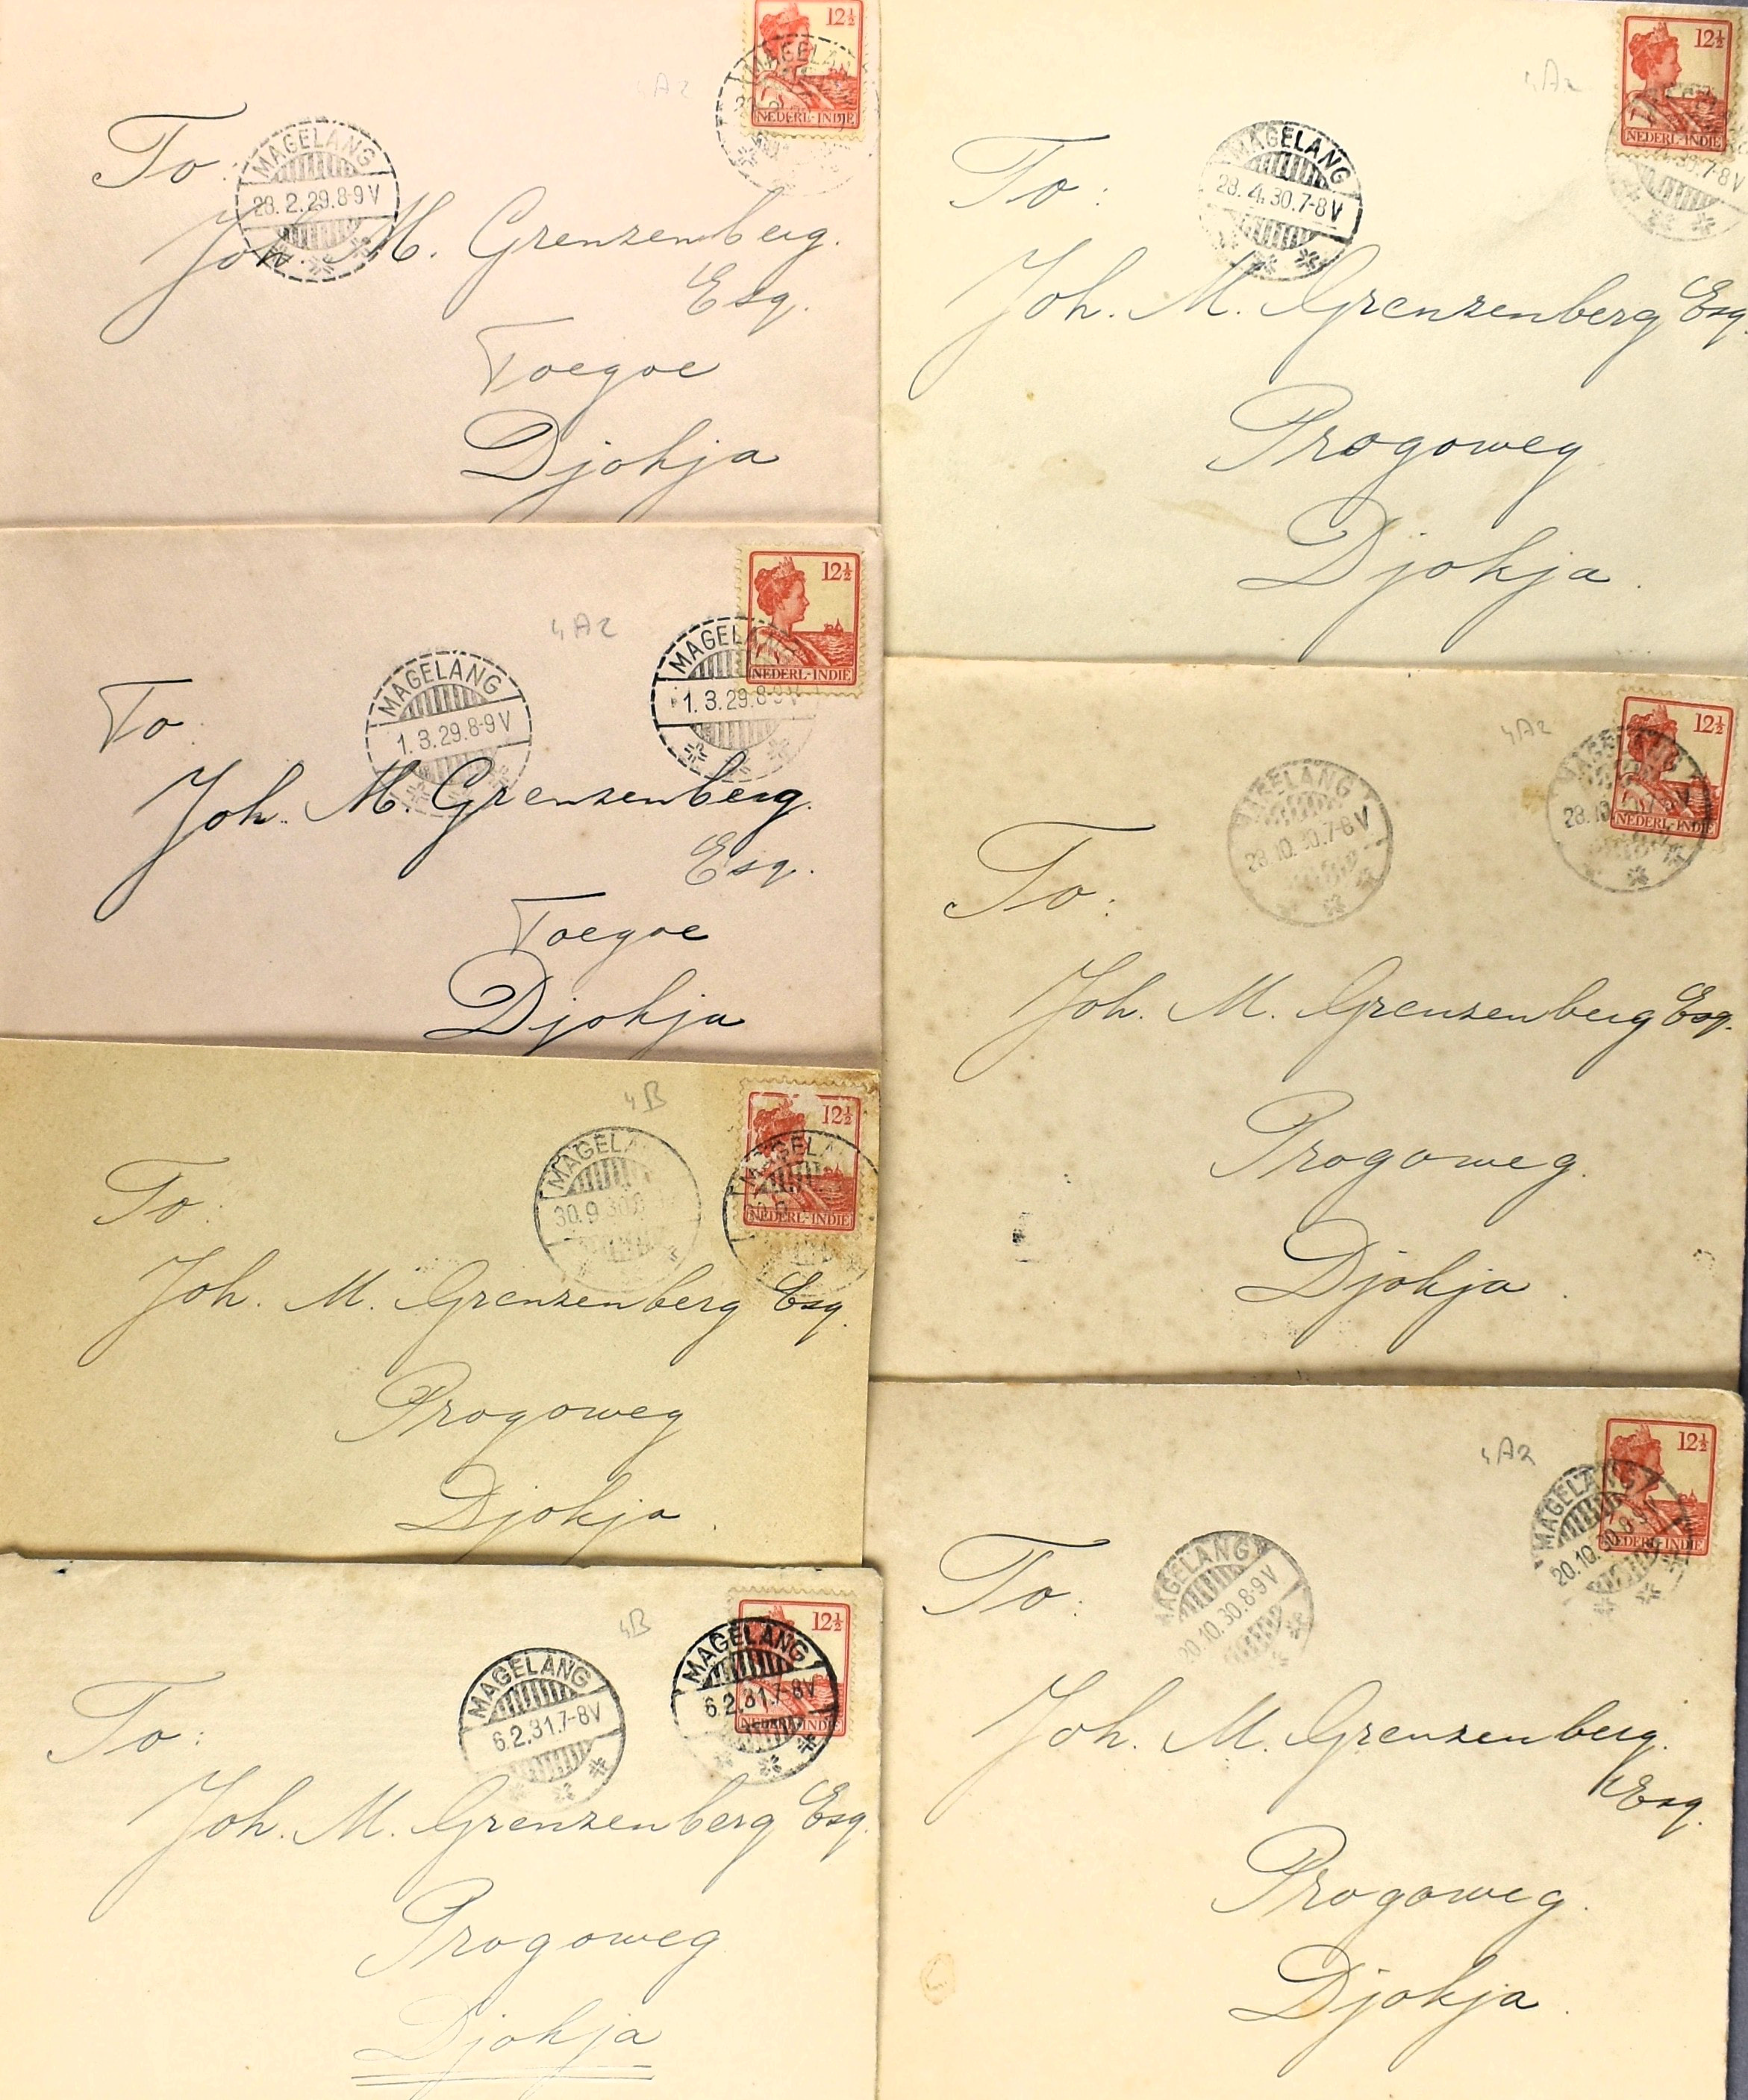 12½
NEDERL-INDIE
MAGELANG
4A2
To:
MAGELANG
28.2.29.8-9V
Joh. M. Grenzenberg.
Esq.
Toegoe
Djokja
12½
NEDERL-INDIE
MAGELANG
1.3.29.8-9V
4A2
To:
MAGELANG
1.3.29.8-9V
Joh. M. Grenzenberg.
Esq.
Toegoe
Djokja
12½
NEDERL-INDIE
MAGELA
4B
To:
MAGELA
30.9.30
Joh. M. Grenzenberg Esq.
Progoweg
Djokja.
12½
NEDERL-INDIE
MAGELANG
6.2.31.7-8V
4B
To:
MAGELANG
6.2.31.7-8V
Joh. M. Grenzenberg Esq.
Progoweg
Djokja
12½
NEDERL-INDIE
7-8V
4A2
To:
MAGELANG
28.4.30.7-8V
Joh. M. Grenzenberg Esq.
Progoweg
Djokja.
12½
NEDERL-INDIE
MAGELANG
28.10
4A2
To:
MAGELANG
28.10.30.7-8V
Joh. M. Grenzenberg Esq.
Progoweg.
Djokja.
12½
NEDERL-INDIE
MAGELANG
20.10.30.8-9V
4A2
To:
MAGELANG
20.10.30.8-9V
Joh. M. Grenzenberg.
Esq.
Progoweg.
Djokja.